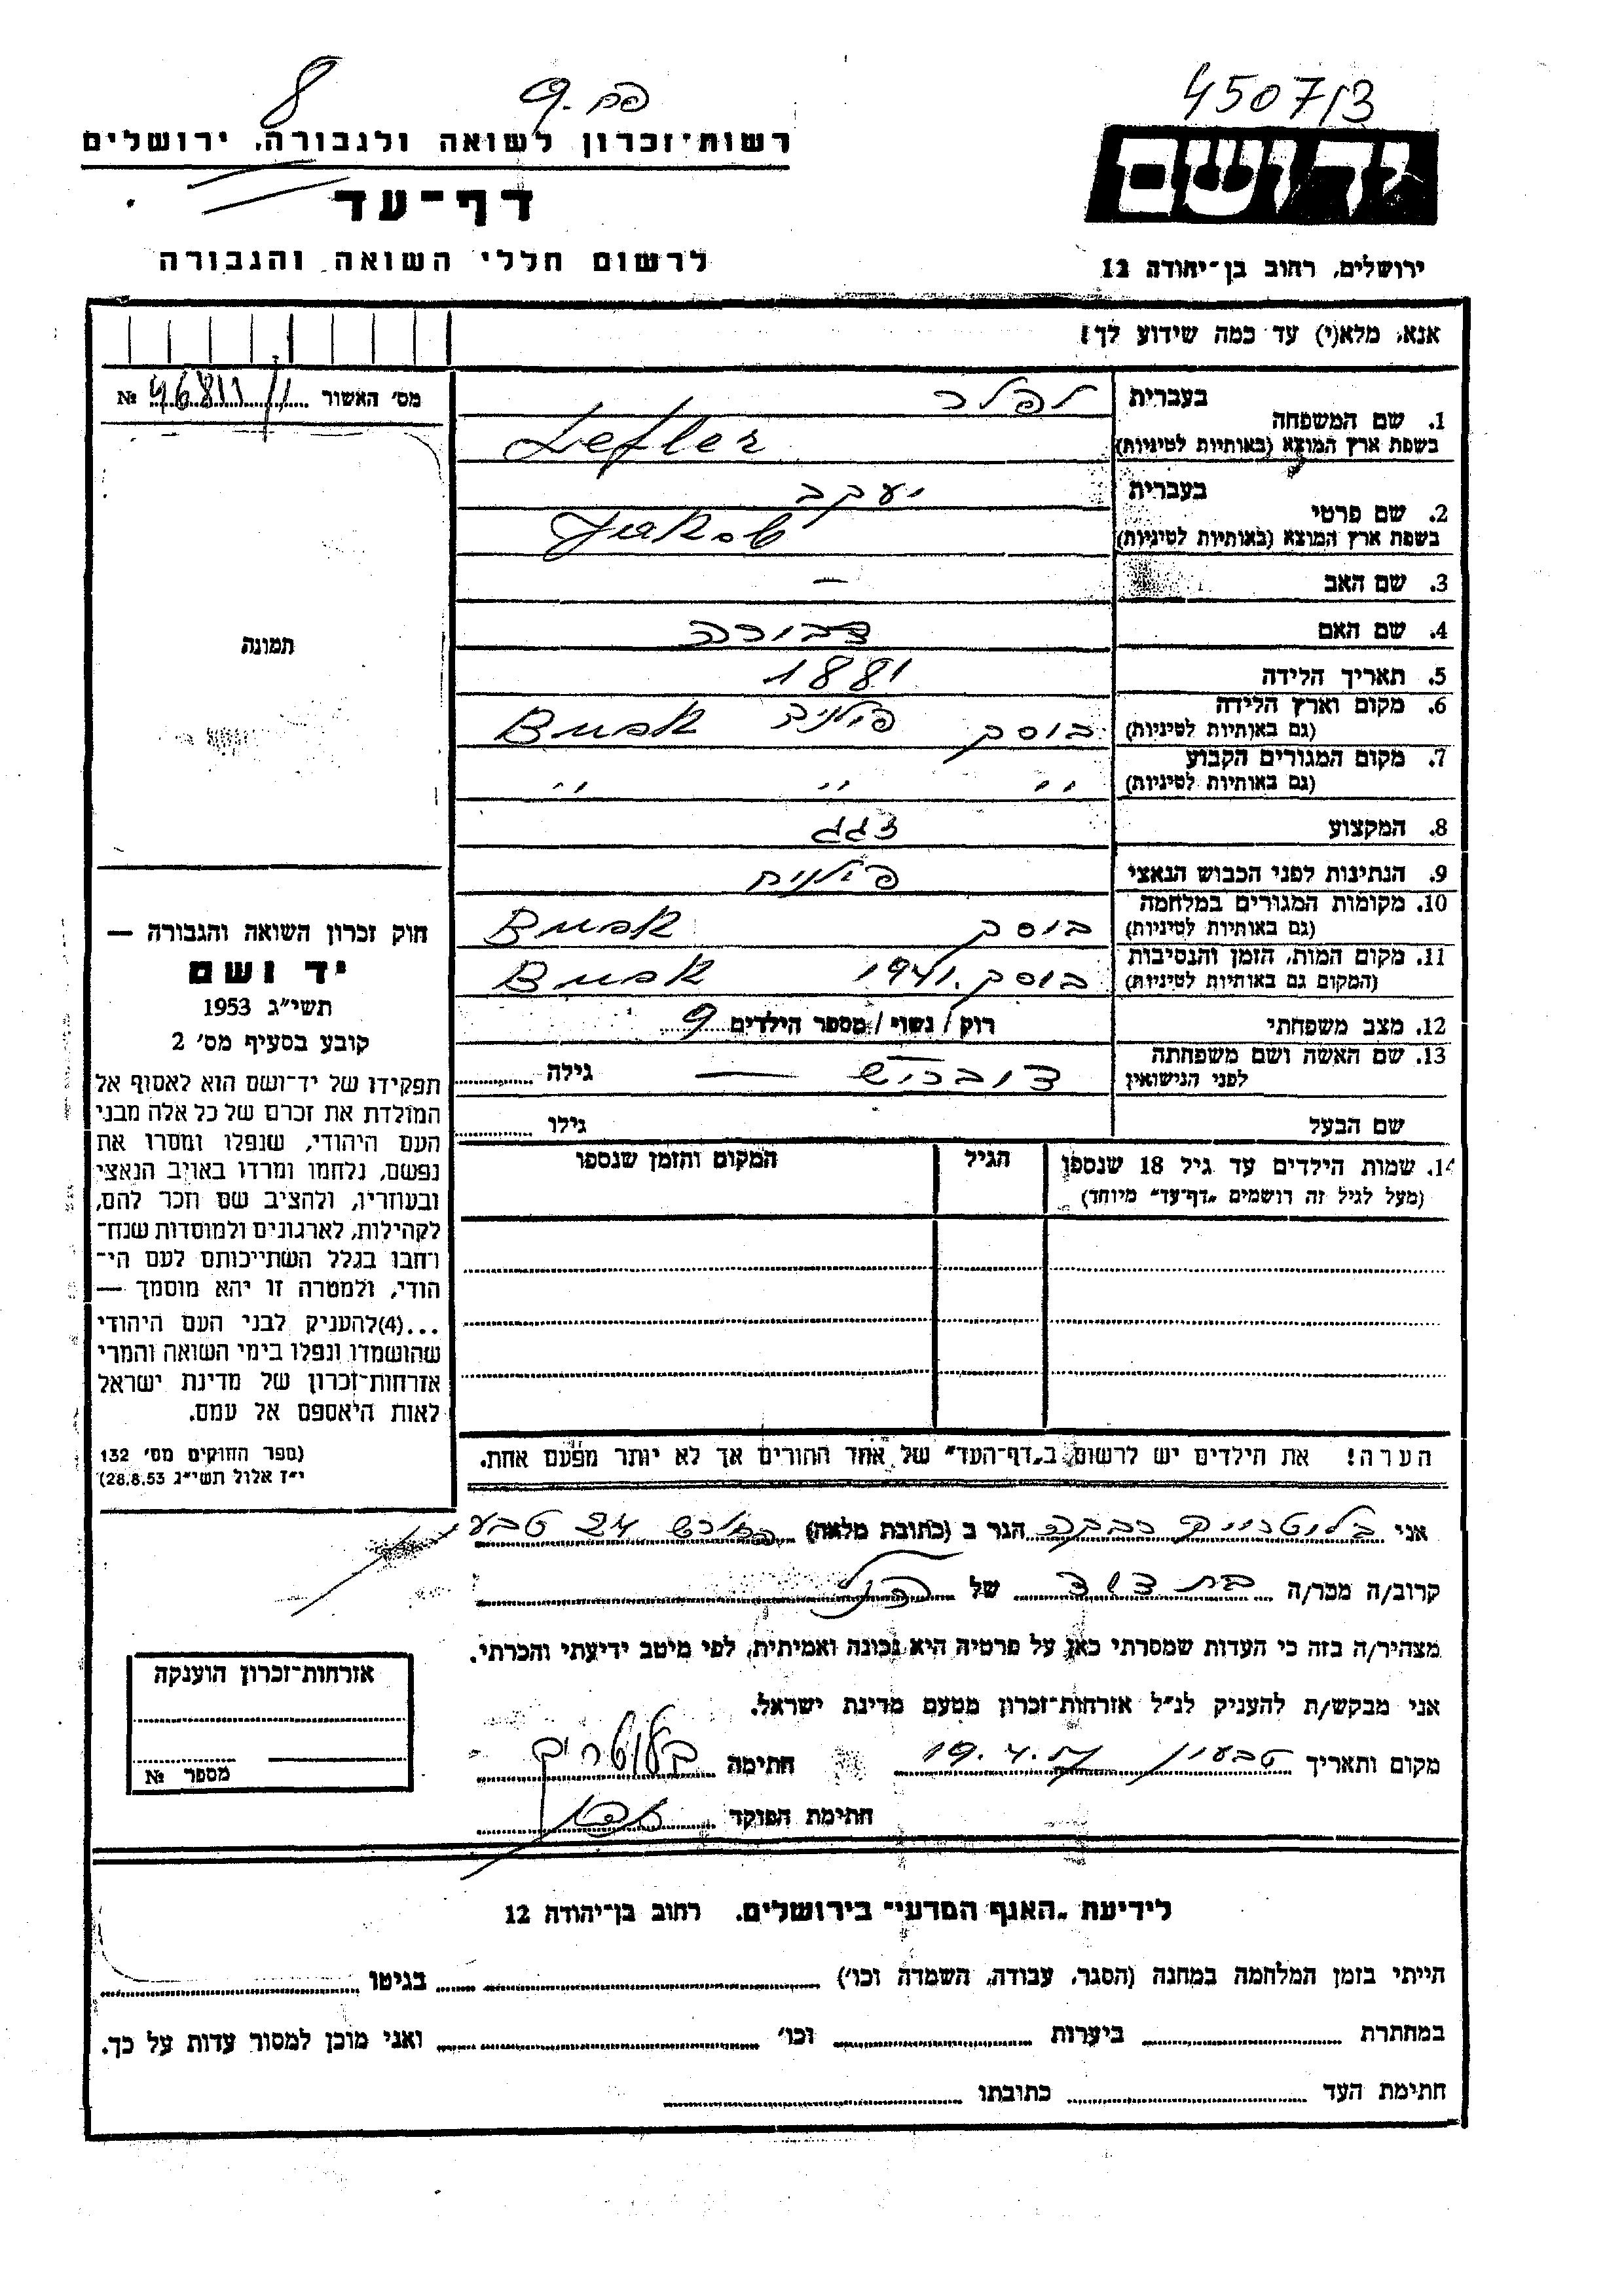 4507/3
פח. 9
8
יד ושם
רשות־זכרון לשואה ולגבורה, ירושלים
דף־עד
לרשום חללי השואה והגבורה
ירושלים, רחוב בן־יהודה 12
אנא, מלא(י) עד כמה שידוע לך!
מס׳ האשור № 46811/1
תמונה
1. שם המשפחה בעברית לפלר
בשפת ארץ המוצא (באותיות לטיניות) Lefler
2. שם פרטי בעברית יעקב
בשפת ארץ המוצא (באותיות לטיניות) Jakob
3. שם האב —
4. שם האם דבורה
5. תאריך הלידה 1881
6. מקום וארץ הלידה (גם באותיות לטיניות) בוסק פולניה Busk
7. מקום המגורים הקבוע (גם באותיות לטיניות) " " "
8. המקצוע זגג
9. הנתינות לפני הכבוש הנאצי פולנית
10. מקומות המגורים במלחמה (גם באותיות לטיניות) בוסק Busk
11. מקום המות, הזמן והנסיבות (המקום גם באותיות לטיניות) בוסק, 1941 Busk
12. מצב משפחתי רוק / נשוי / מספר הילדים 9
13. שם האשה ושם משפחתה לפני הנישואין דוברוש — גילה
שם הבעל גילו
14. שמות הילדים עד גיל 18 שנספו הגיל המקום והזמן שנספו
(מעל לגיל זה רושמים „דף־עד" מיוחד)
הערה! את הילדים יש לרשום ב„דף־העד" של אחד ההורים אך לא יותר מפעם אחת.
חוק זכרון השואה והגבורה —
יד ושם
תשי"ג 1953
קובע בסעיף מס׳ 2
תפקידו של יד־ושם הוא לאסוף אל
המולדת את זכרם של כל אלה מבני
העם היהודי, שנפלו ומסרו את
נפשם, נלחמו ומרדו באויב הנאצי
ובעוזריו, ולהציב שם וזכר להם,
לקהילות, לארגונים ולמוסדות שנח־
רחבו בגלל השתייכותם לעם הי־
הודי, ולמטרה זו יהא מוסמך —
...(4)להעניק לבני העם היהודי
שהושמדו ונפלו בימי השואה והמרי
אזרחות־זכרון של מדינת ישראל
לאות היאספם אל עמם.
(ספר החוקים מס׳ 132
י"ז אלול תשי"ג 28.8.53)
אני רבקה הגר ב (כתובת מלאה) 24 טבעון
קרוב/ה מכר/ה בת דוד של הנ"ל
מצהיר/ה בזה כי העדות שמסרתי כאן על פרטיה היא נכונה ואמיתית, לפי מיטב ידיעתי והכרתי.
אני מבקש/ת להעניק לנ"ל אזרחות־זכרון מטעם מדינת ישראל.
מקום ותאריך טבעון 19.4. חתימה
חתימת הפוקד
אזרחות־זכרון הוענקה
מספר №
לידיעת „האגף המדעי" בירושלים. רחוב בן־יהודה 12
הייתי בזמן המלחמה במחנה (הסגר, עבודה, השמדה וכו׳) בגיטו
במחתרת ביערות וכו׳ ואני מוכן למסור עדות על כך.
חתימת העד כתובתו